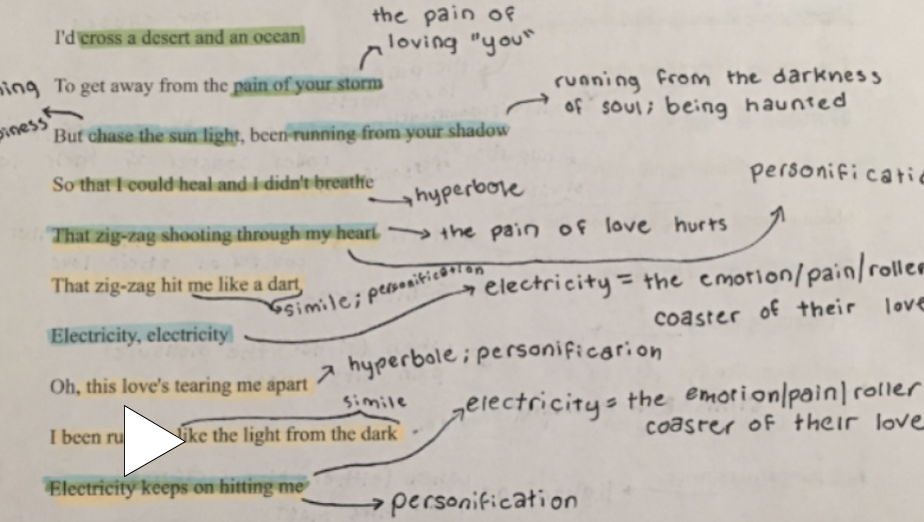 the pain of
loving "you"
I'd cross a desert and an ocean
To get away from the pain of your storm
running from the darkness
of soul; being haunted
But chase the sun light, been running from your shadow
So that I could heal and I didn't breathe
hyperbole
That zig-zag shooting through my heart
the pain of love hurts
That zig-zag hit me like a dart
simile; personification
electricity = the emotion/pain/roller
coaster of their love
Electricity, electricity
Oh, this love's tearing me apart
hyperbole; personificarion
simile
I been like the light from the dark
electricity = the emotion/pain/roller
coaster of their love
Electricity keeps on hitting me
personification